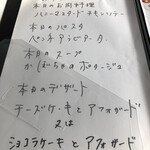 本日のお肉料理
ハニーマスタードチキンソテー
本日のパスタ
ペンネアラビアータ
本日のスープ
かぼちゃのポタージュ
本日のデザート
チーズケーキとアフォガード
又は
ショコラケーキとアフォガード